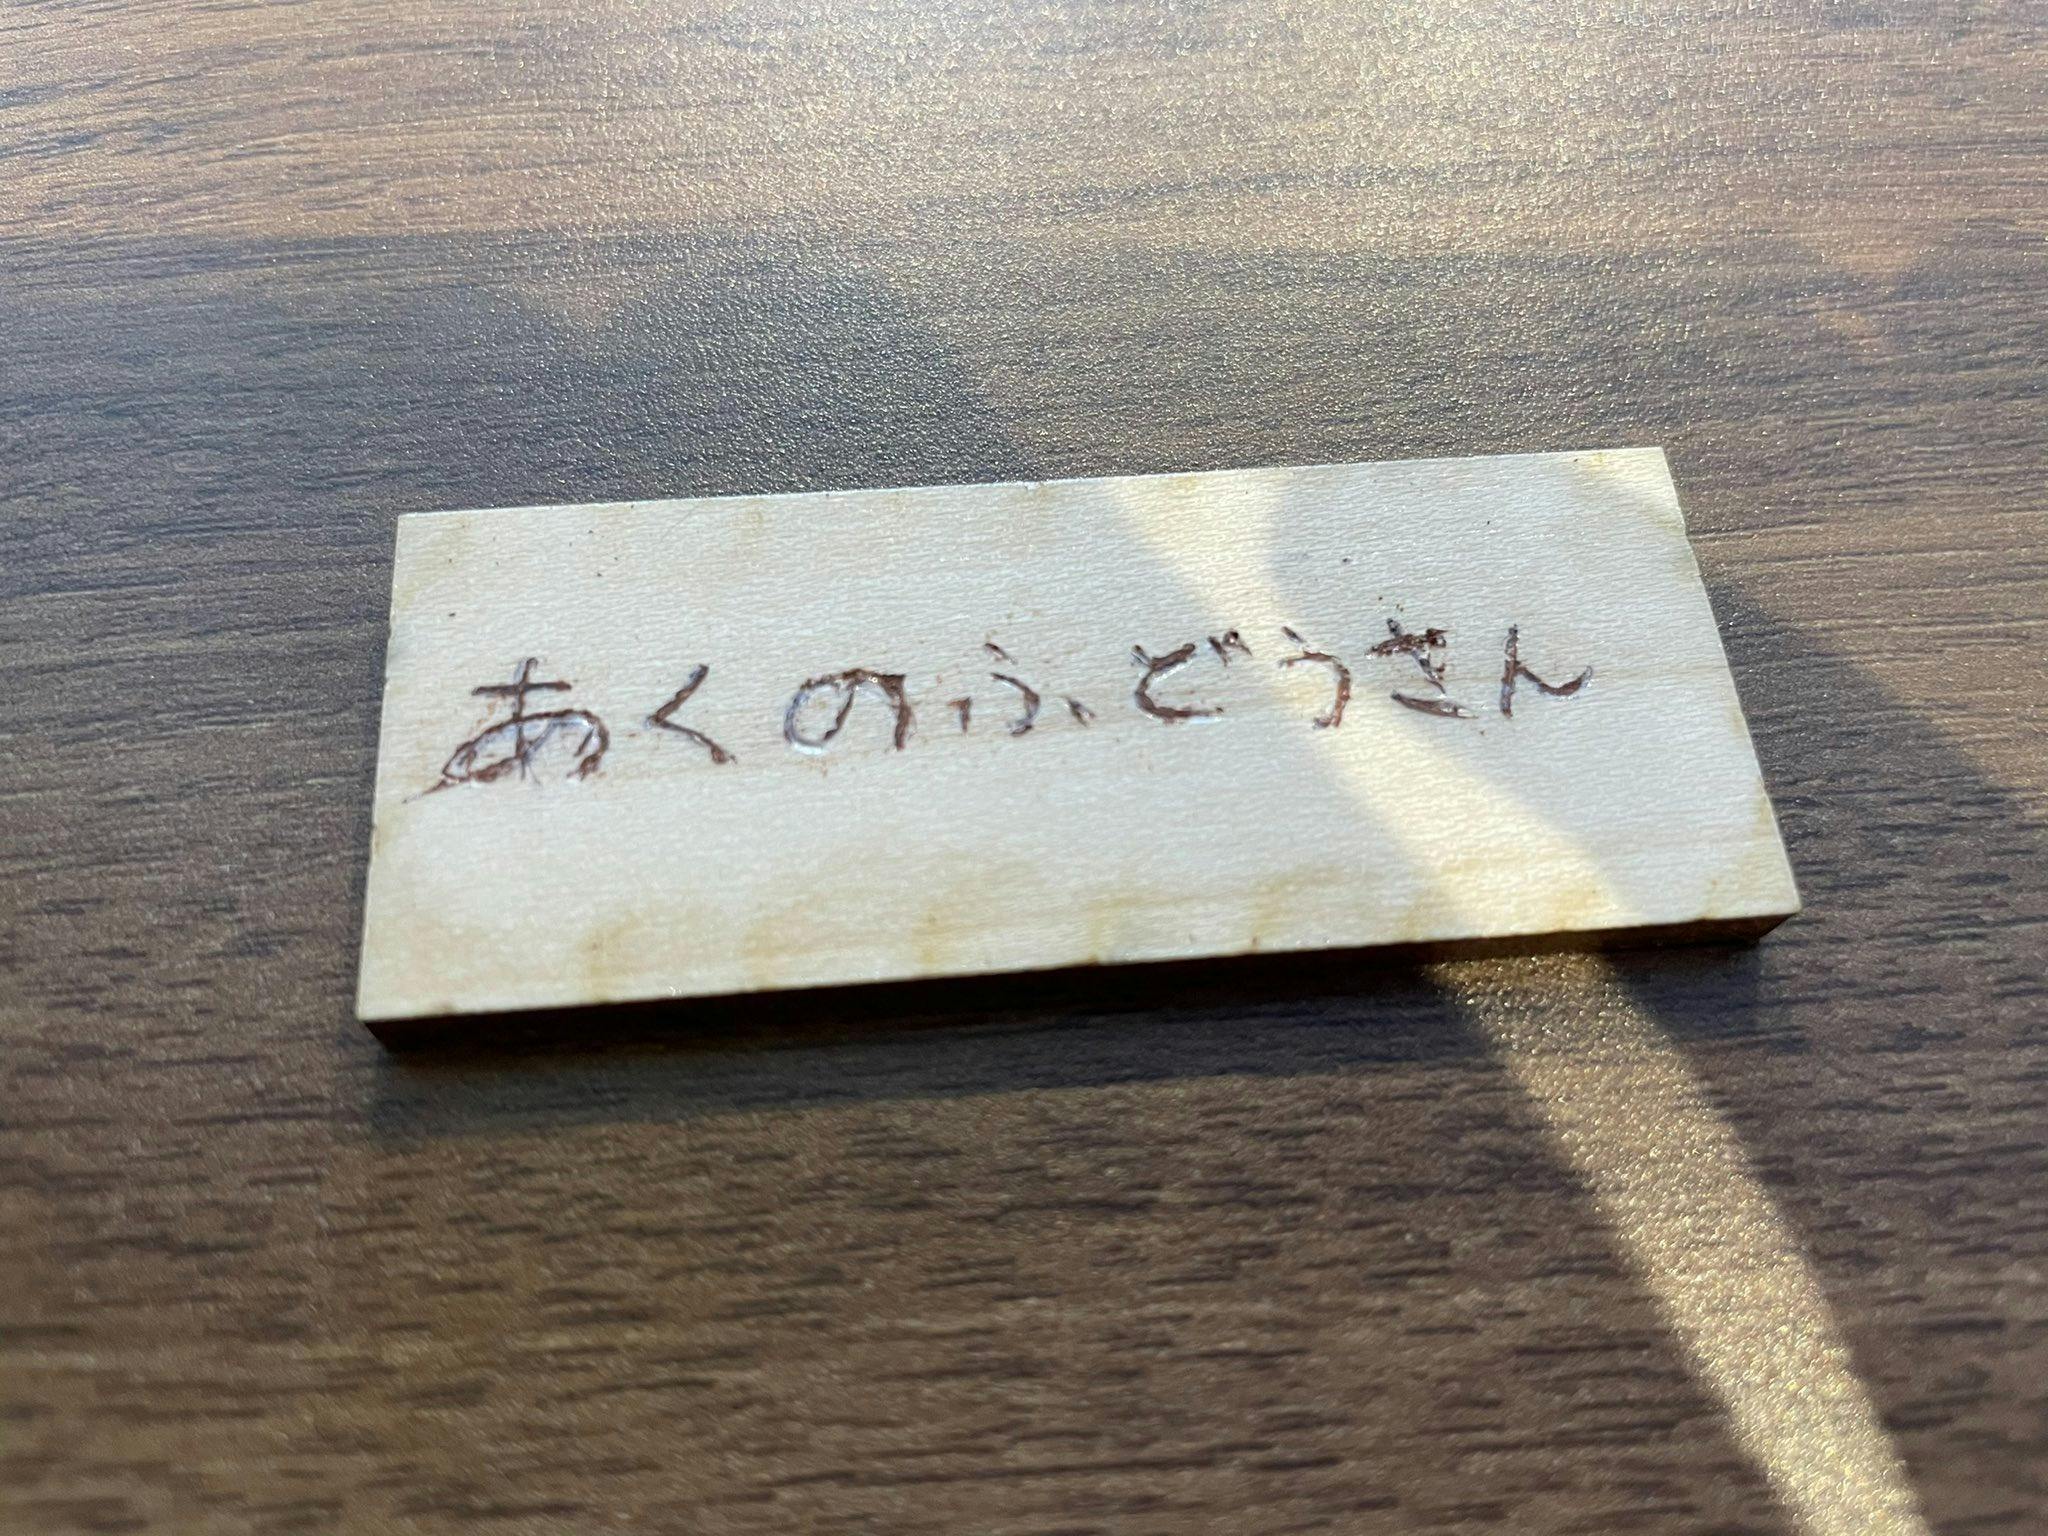 あくのふどうさん